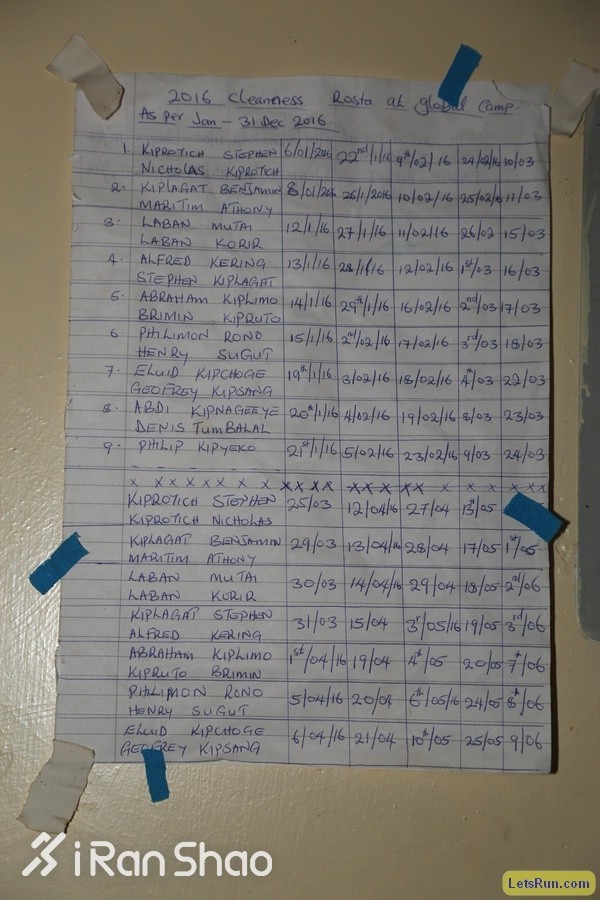 2016 cleanness Rosta at global camp.
As per Jan - 31 Dec 2016.
1. KIPROTICH STEPHEN 6/01/2016 22nd/1/16 9th/02/16 24/02/16 10/03
NICHOLAS KIPROTICH
2- KIPLAGAT BENJAMIN 8/01/2016 26/1/2016 10/02/16 25/02/16 11/03
MARITIM ATHONY
3. LABAN MUTAI 12/1/16 27/1/16 11/02/16 26/02 15/03
LABAN KORIR
4. ALFRED KERING 13/1/16 28/1/16 12/02/16 1st/03 16/03
STEPHEN KIPLAGAT
5. ABRAHAM KIPLIMO 14/1/16 29th/1/16 16/02/16 2nd/03 17/03
BRIMIN KIPRUTO
6. PHILIMON RONO 15/1/16 2nd/02/16 17/02/16 3rd/03 18/03
HENRY SUGUT
7. ELUID KIPCHOGE 19th/1/16 3/02/16 18/02/16 4th/03 22/03
GEOFREY KIPSANG
8. ABDI KIPNAGEEYE 20th/1/16 4/02/16 19/02/16 8/03 23/03
DENIS TUMBALAL
9. PHILIP KIPYEKO 21st/1/16 5/02/16 23/02/16 9/03 24/03
x x x x x x x x x x x x x x x x x x x x x x
KIPROTICH STEPHEN 25/03 12/04/16 27/04 13th/05
KIPROTICH NICHOLAS
KIPLAGAT BENJAMIN 29/03 13/04/16 28/04 17/05 1st/05
MARITIM ATHONY
LABAN MUTAI 30/03 14/04/16 29/04 18/05 2nd/06
LABAN KORIR
KIPLAGAT STEPHEN 31/03 15/04 3r/05/16 19/05 3rd/06
ALFRED KERING
ABRAHAM KIPLIMO 1st/04/16 19/04 4th/05 20/05 7th/06
KIPRUTO BRIMIN
PHILIMON RONO 5/04/16 20/04 6th/05/16 24/05 8th/06
HENRY SUGUT
ELUID KIPCHOGE 6/04/16 21/04 10th/05 25/05 9/06
GEOFREY KIPSANG
iRanShao
LetsRun.com